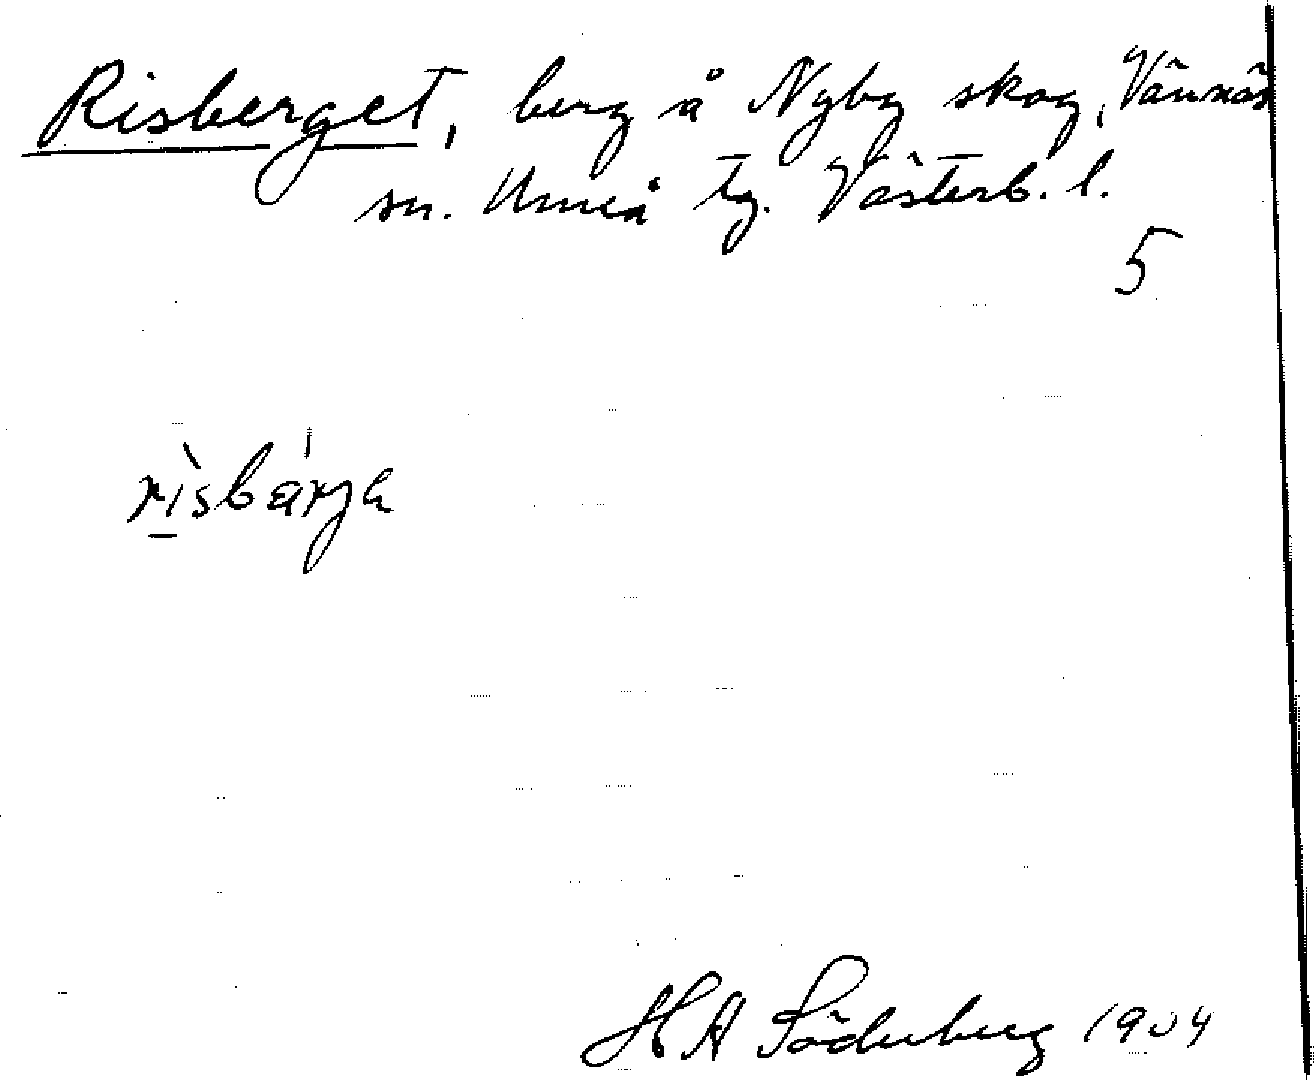 Risberget, berg å Nyby skog, Vännäs
sn. Umeå tg. Västerb. l.
5
rìsbärja
H A Söderberg 1904